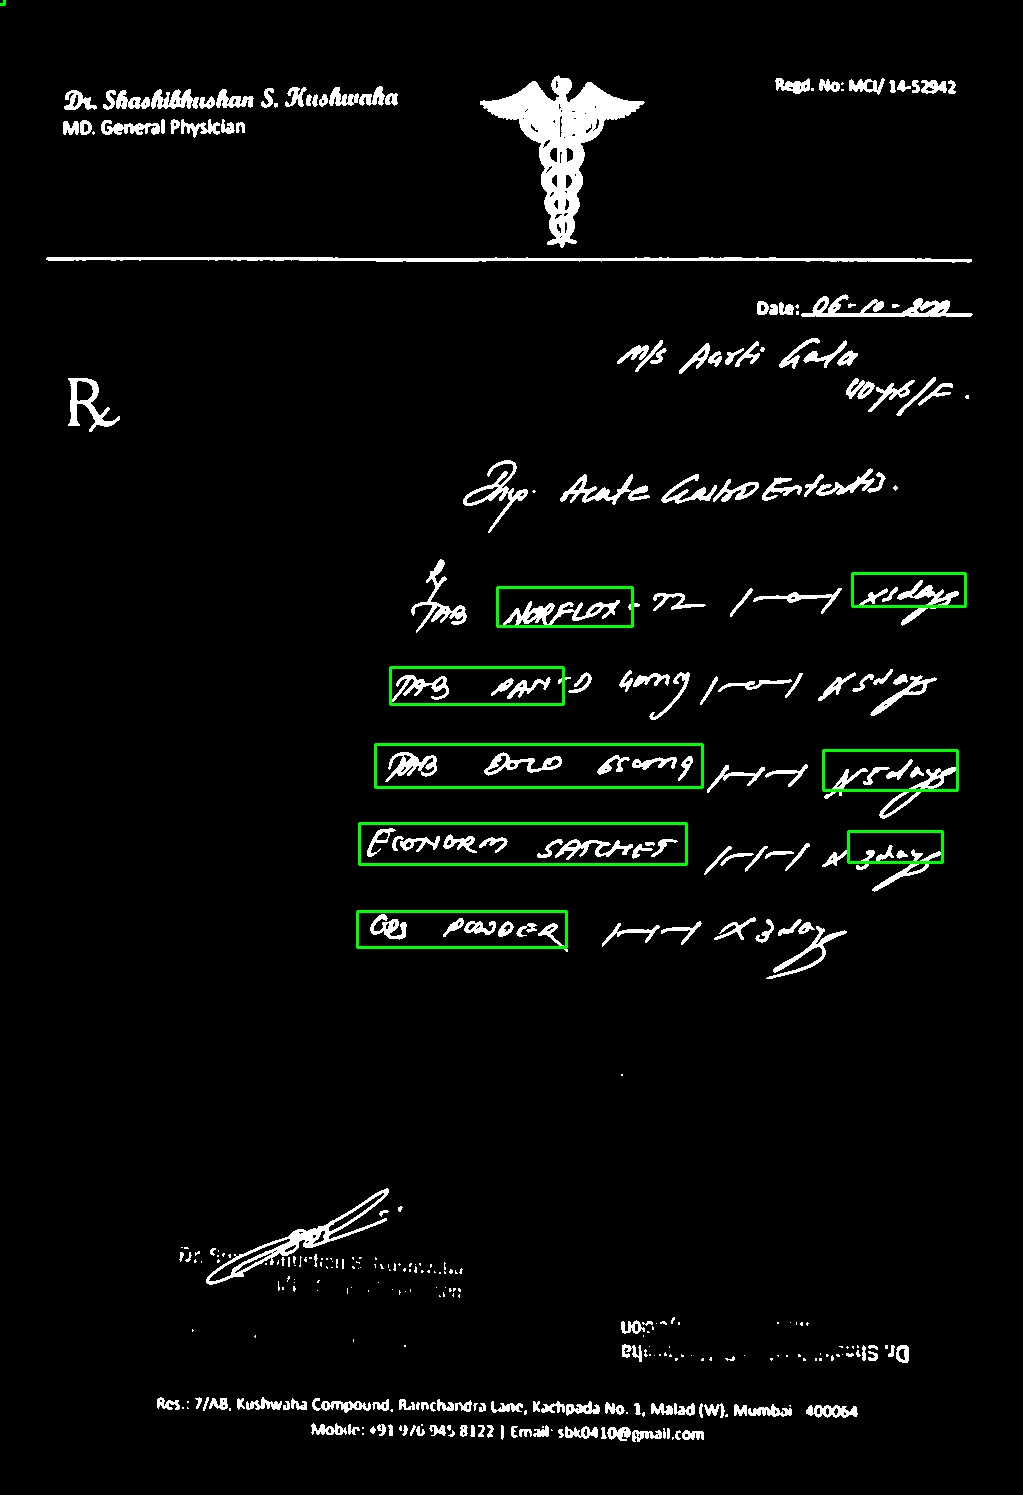 Dr. Shashibhushan S. Kushwaha
MD. General Physician
Regd. No: MCI/ 14-52942
Date: 06-10-
M/s Aarti Gala
40 yrs/F.
Rx
Imp. Acute Gastro Enteritis.
Rx
TAB NORFLOX - TZ 1-0-1 x5days
TAB PAN-D 40mg 1-0-1 x5days
TAB DOLO 650mg 1-1-1 x5days
ECONORM SATCHET 1-1-1 x3days
ORS POWDER 1-1-1 x3day
Dr. S. Kushwaha
Dr. Shas
Res.: 7/AB, Kushwaha Compound, Ramchandra Lane, Kachpada No. 1, Malad (W), Mumbai 400064
Mobile: +91 976 945 8122 | Email: sbk0410@gmail.com